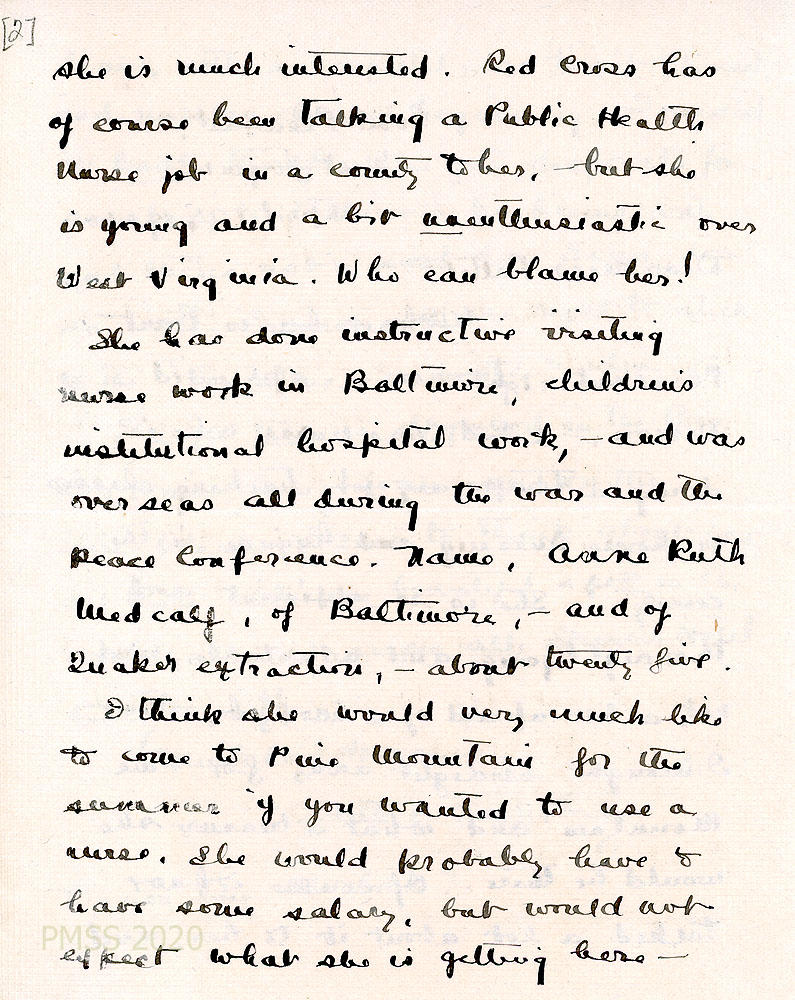 [2]
she is much interested. Red Cross has
of course been talking a Public Health
Nurse job in a county to her, – but she
is young and a bit unenthusiastic over
West Virginia. Who can blame her!
She has done instructive visiting
nurse work in Baltimore, children's
institutional hospital work, – and was
overseas all during the war and the
Peace Conference. Name, Anne Ruth
Medcalf, of Baltimore, – and of
Quaker extraction, – about twenty five.
I think she would very much like
to come to Pine Mountain for the
summer if you wanted to use a
nurse. She would probably have to
have some salary, but would not
expect what she is getting here –
PMSS 2020